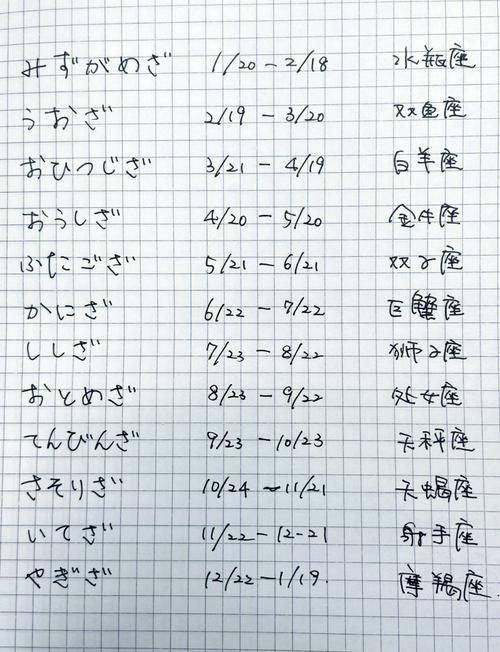 みずがめざ 1/20 - 2/18 水瓶座
うおざ 2/19 - 3/20 双鱼座
おひつじざ 3/21 - 4/19 白羊座
おうしざ 4/20 - 5/20 金牛座
ふたござ 5/21 - 6/21 双子座
かにざ 6/22 - 7/22 巨蟹座
ししざ 7/23 - 8/22 狮子座
おとめざ 8/23 - 9/22 处女座
てんびんざ 9/23 - 10/23 天秤座
さそりざ 10/24 ~ 11/21 天蝎座
いてざ 11/22 - 12-21 射手座
やぎざ 12/22 - 1/19. 摩羯座.